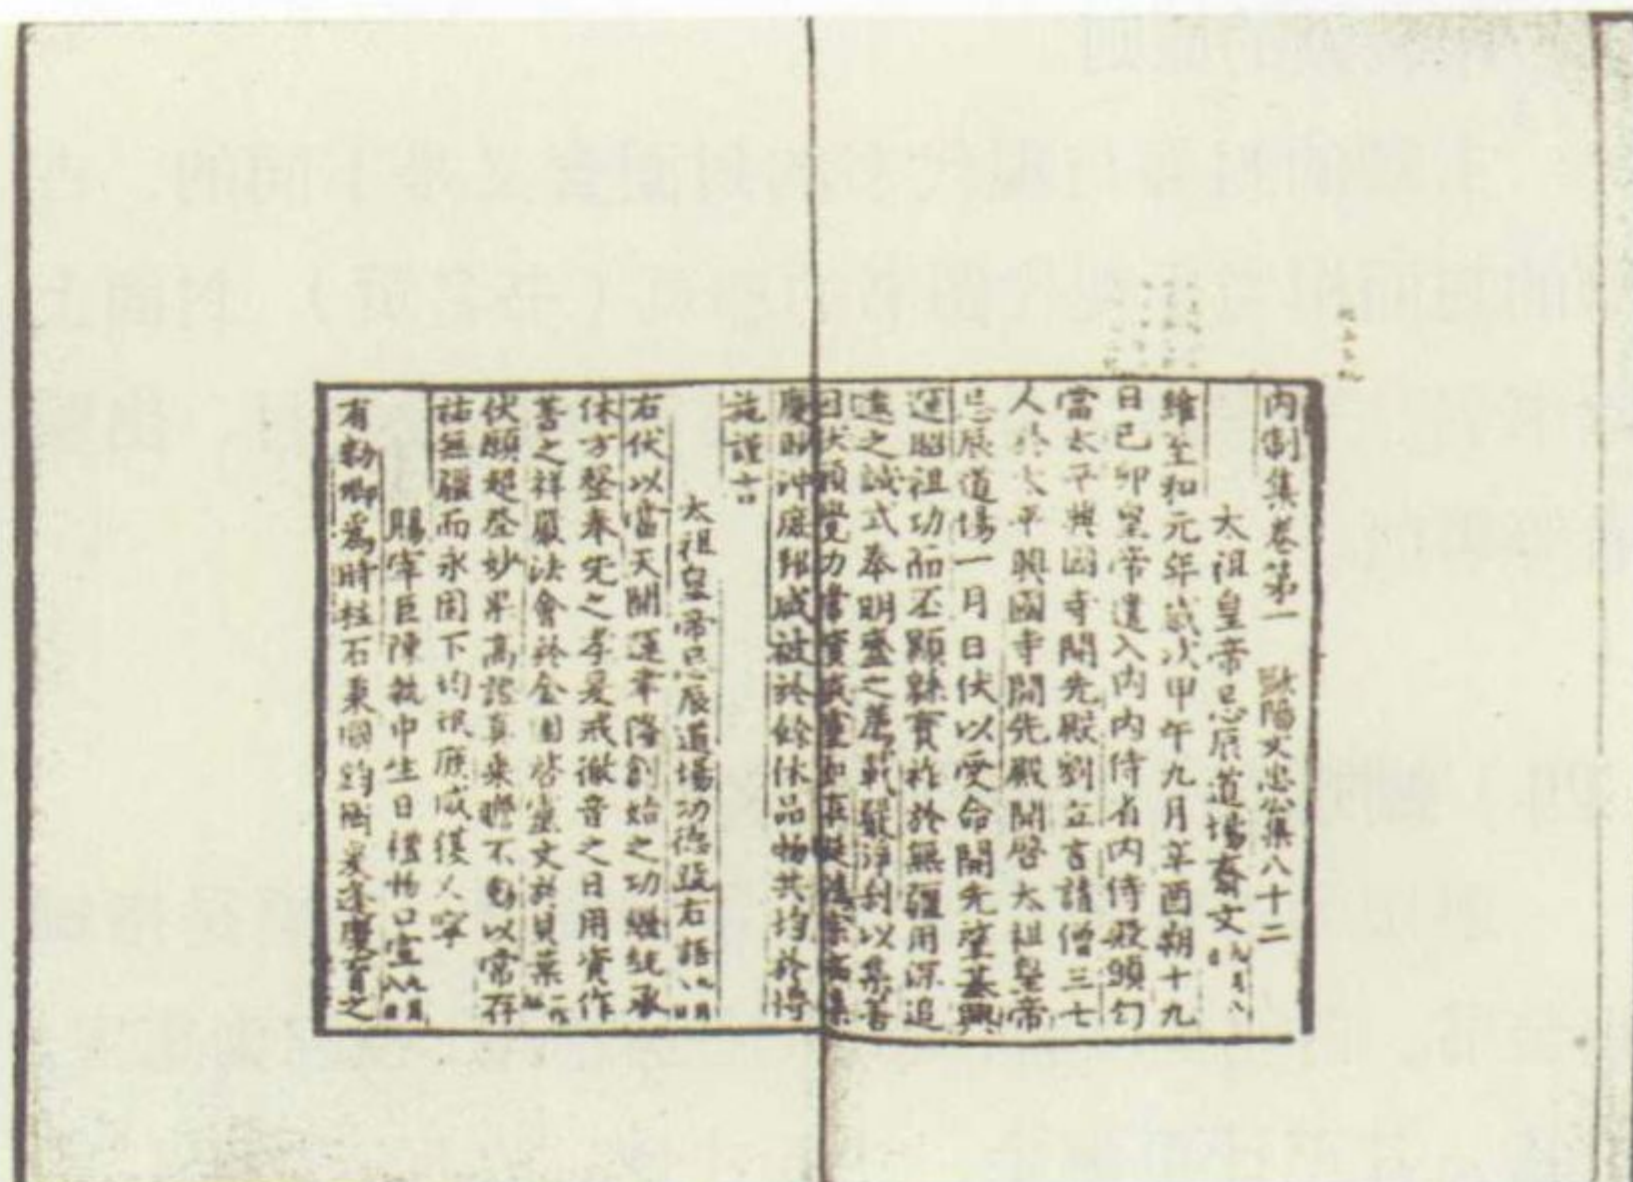 内制集卷第一 歐陽文忠公集八十二
太祖皇帝忌辰道場齋文
維至和元年歲次甲午九月辛酉朔十九
日己卯皇帝遣入内内侍省内侍殿頭勾
當太平興國寺開先殿劉立言請僧三七
人於太平興國寺開先殿開啓太祖皇帝
忌辰道場一月日伏以受命開先肇基興
運昭祖功而丕顯緜寶祚於無疆用深追
遠之誠式奉明盛之薦載嚴淨刹以集善
因伏願覺力
慶助沖庥錫咸被於餘休品物共均於博
施謹言
太祖皇帝忌辰道場功德疏右語
右伏以當天開運聿隆創始之功繼統承
休方罄奉先之孝爰戒徽音之日用資作
善之祥嚴法會於金園啓靈文於貝葉
伏願超登妙果高證真乘瞻不動以常存
祐無疆而永固下均氓庶咸獲乂寧
賜宰臣陳執中生日禮物口宣
有勑卿爲時柱石秉國鈞衡爰逢慶育之